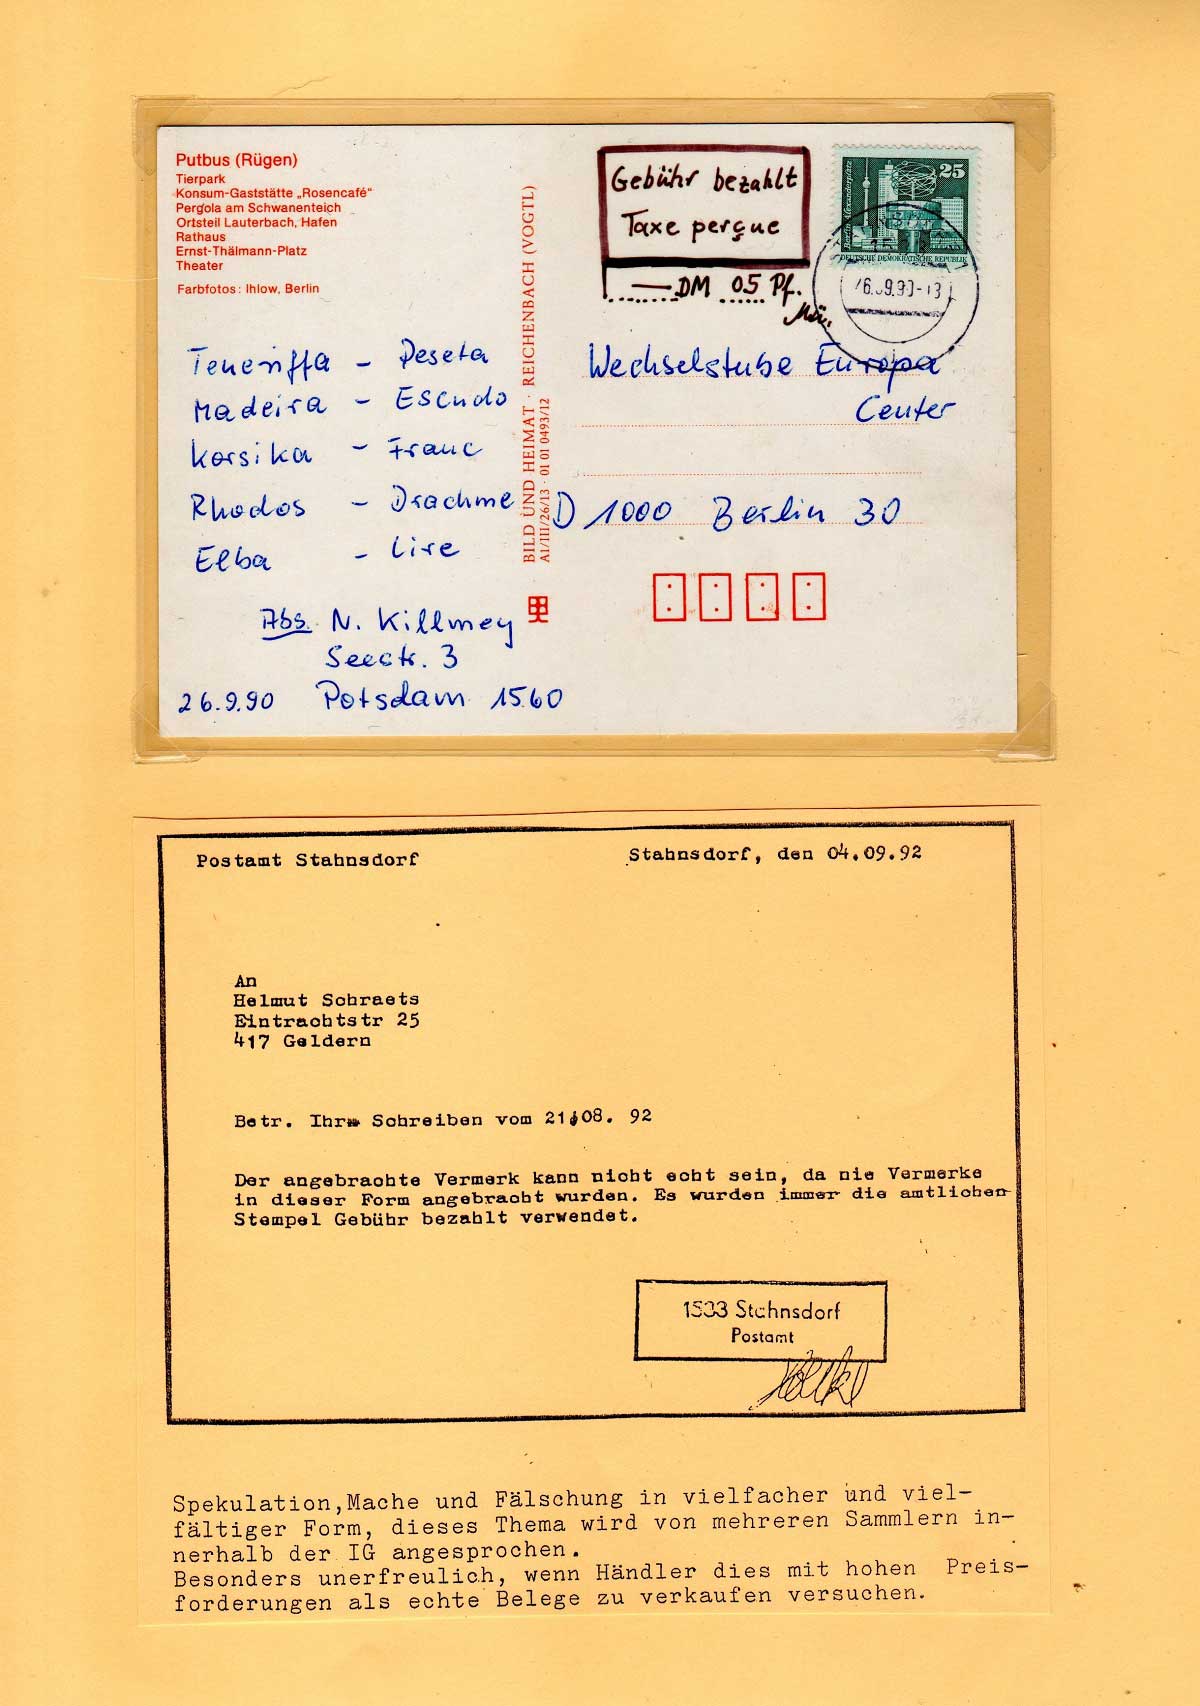 Putbus (Rügen)
Tierpark
Konsum-Gaststätte „Rosencafé“
Pergola am Schwanenteich
Ortsteil Lauterbach, Hafen
Rathaus
Ernst-Thälmann-Platz
Theater
Farbfotos: Ihlow, Berlin
BILD UND HEIMAT · REICHENBACH (VOGTL)
A1/III/26/13 · 01 01 0493/12
Gebühr bezahlt
Taxe perçue
— DM 05 Pf.
Berlin-Alexanderplatz
25
DEUTSCHE DEMOKRATISCHE REPUBLIK
26.09.90-13
Teneriffa - Peseta
Madeira - Escudo
Korsika - Franc
Rhodos - Drachme
Elba - Lire
Abs. N. Killmey
Seestr. 3
26.9.90 Potsdam 1560
Wechselstube Europa
Center
D 1000 Berlin 30
Postamt Stahnsdorf
Stahnsdorf, den 04.09.92
An
Helmut Schraets
Eintrachtstr 25
417 Geldern
Betr. Ihr Schreiben vom 21.08. 92
Der angebrachte Vermerk kann nicht echt sein, da nie Vermerke
in dieser Form angebracht wurden. Es wurden immer die amtlichen
Stempel Gebühr bezahlt verwendet.
1533 Stahnsdorf
Postamt
Spekulation,Mache und Fälschung in vielfacher und viel-
fältiger Form, dieses Thema wird von mehreren Sammlern in-
nerhalb der IG angesprochen.
Besonders unerfreulich, wenn Händler dies mit hohen Preis-
forderungen als echte Belege zu verkaufen versuchen.